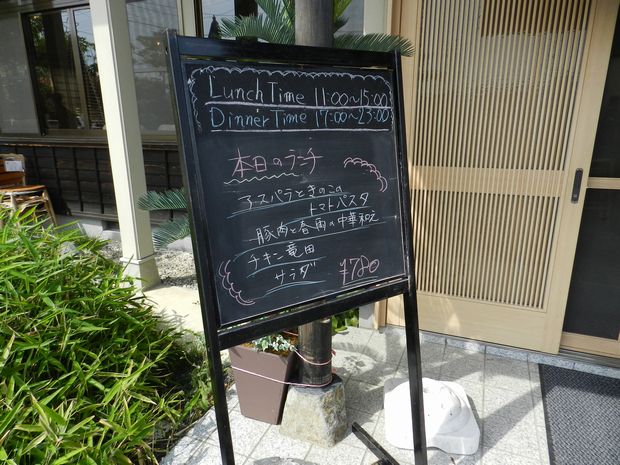 Lunch Time 11:00~15:00
Dinner Time 17:00~23:00
本日のランチ
アスパラときのこの
トマトパスタ
豚肉と春雨の中華和え
チキン竜田
サラダ
¥780